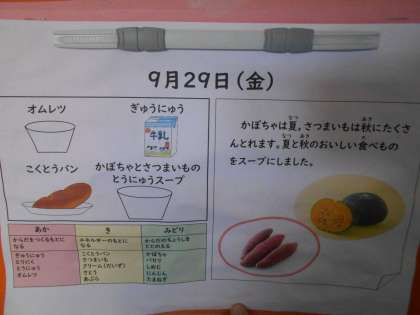 9月29日(金)
オムレツ
ぎゅうにゅう
牛乳
こくとうパン
かぼちゃとさつまいもの
とうにゅうスープ
かぼちゃは夏，さつまいもは秋にたくさ
んとれます。夏と秋のおいしい食べもの
をスープにしました。
あか き みどり
からだをつくるもとに
なる
エネルギーのもとに
なる
からだのちょうしを
ととのえる
ぎゅうにゅう
とりにく
とうにゅう
オムレツ
こくとうパン
さつまいも
クリーム(だいず)
さとう
あぶら
かぼちゃ
パセリ
しめじ
にんじん
たまねぎ